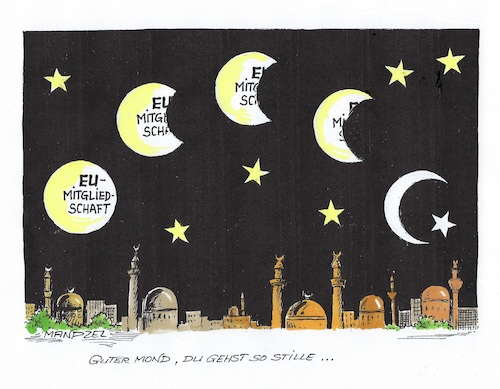 EU-
MITGLIED-
SCHAFT
EU
MITGLIE
SCHA
EU-
MITGL
SCHA
E
MIT
SC
MANDZEL
GUTER MOND, DU GEHST SO STILLE ...